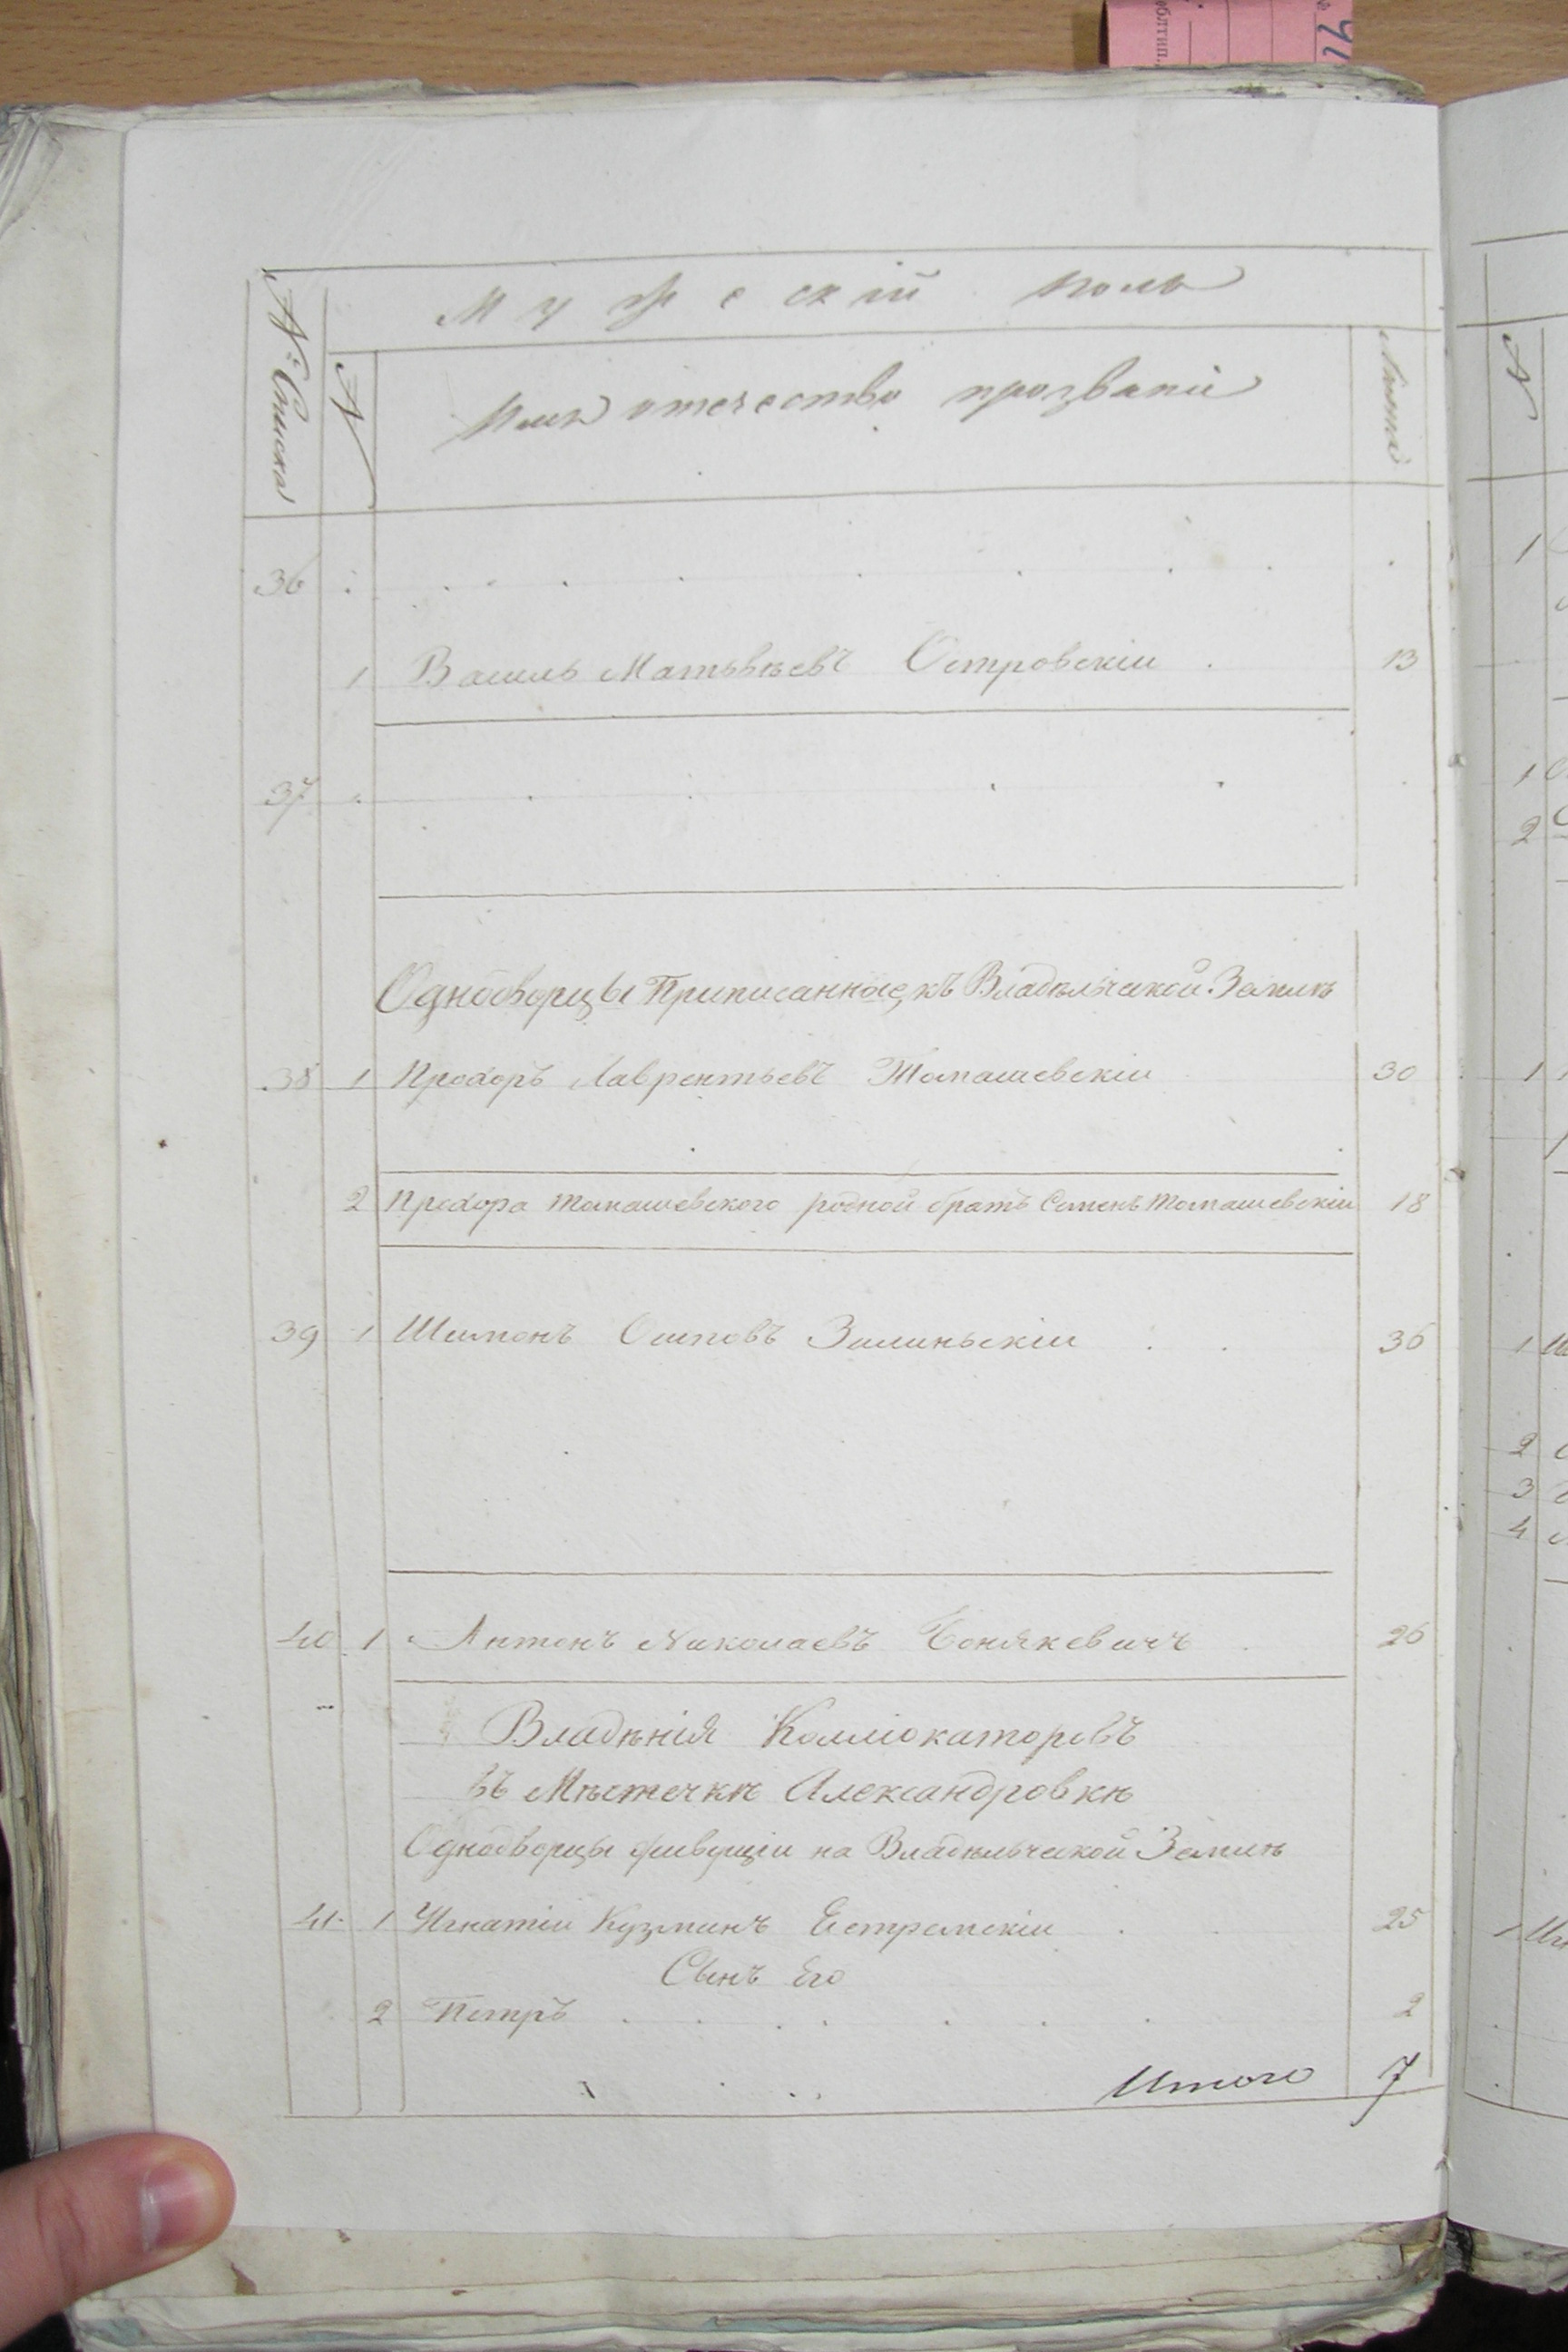 Мужескій полъ
№ Списка
№
Имя отечество прозваніе
Лѣта
36
1 Василь Матьвѣевъ Островскіи 13
37
Однодворцы Приписанное, къ Владѣльческой Землѣ
38 1 Прохоръ Лаврентьевъ Томашевскіи 30
2 Прохора Томашевского родной братъ Семенъ Томашевскіи 18
39 1 Шимонъ Осиповъ Зилиньскіи 36
40 1 Антонъ Николаевъ Бонякевичъ 26
Владѣнія Коллiокаторовъ
въ Мѣстечкѣ Александровкѣ
Однодворцы живущіи на Владѣльческой Землѣ
41 1 Игнатіи Кузминъ Естремскіи 25
Сынъ Его
2 Петръ 2
Итого 7